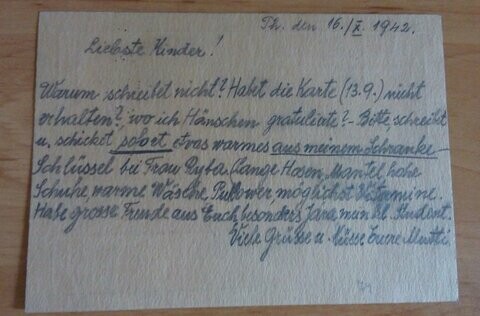 Th. den 16./X. 1942.
Liebste Kinder!
Warum schreibt nicht? Habt die Karte (13.9.) nicht
erhalten?, wo ich Hänschen gratulierte? - Bitte schreibt
u. schicket sofort etvas warmes aus meinem Schranke -
Schlüssel bei Frau Ryba, lange Hosen, Mantel, hohe
Schuhe, warme Wäsche, Pullower, möglichst Vitamine.
Habe grosse Freude aus Euch, besonders Jara, man ist Student.
Viele Grüsse u. Küsse Euere Mutti.